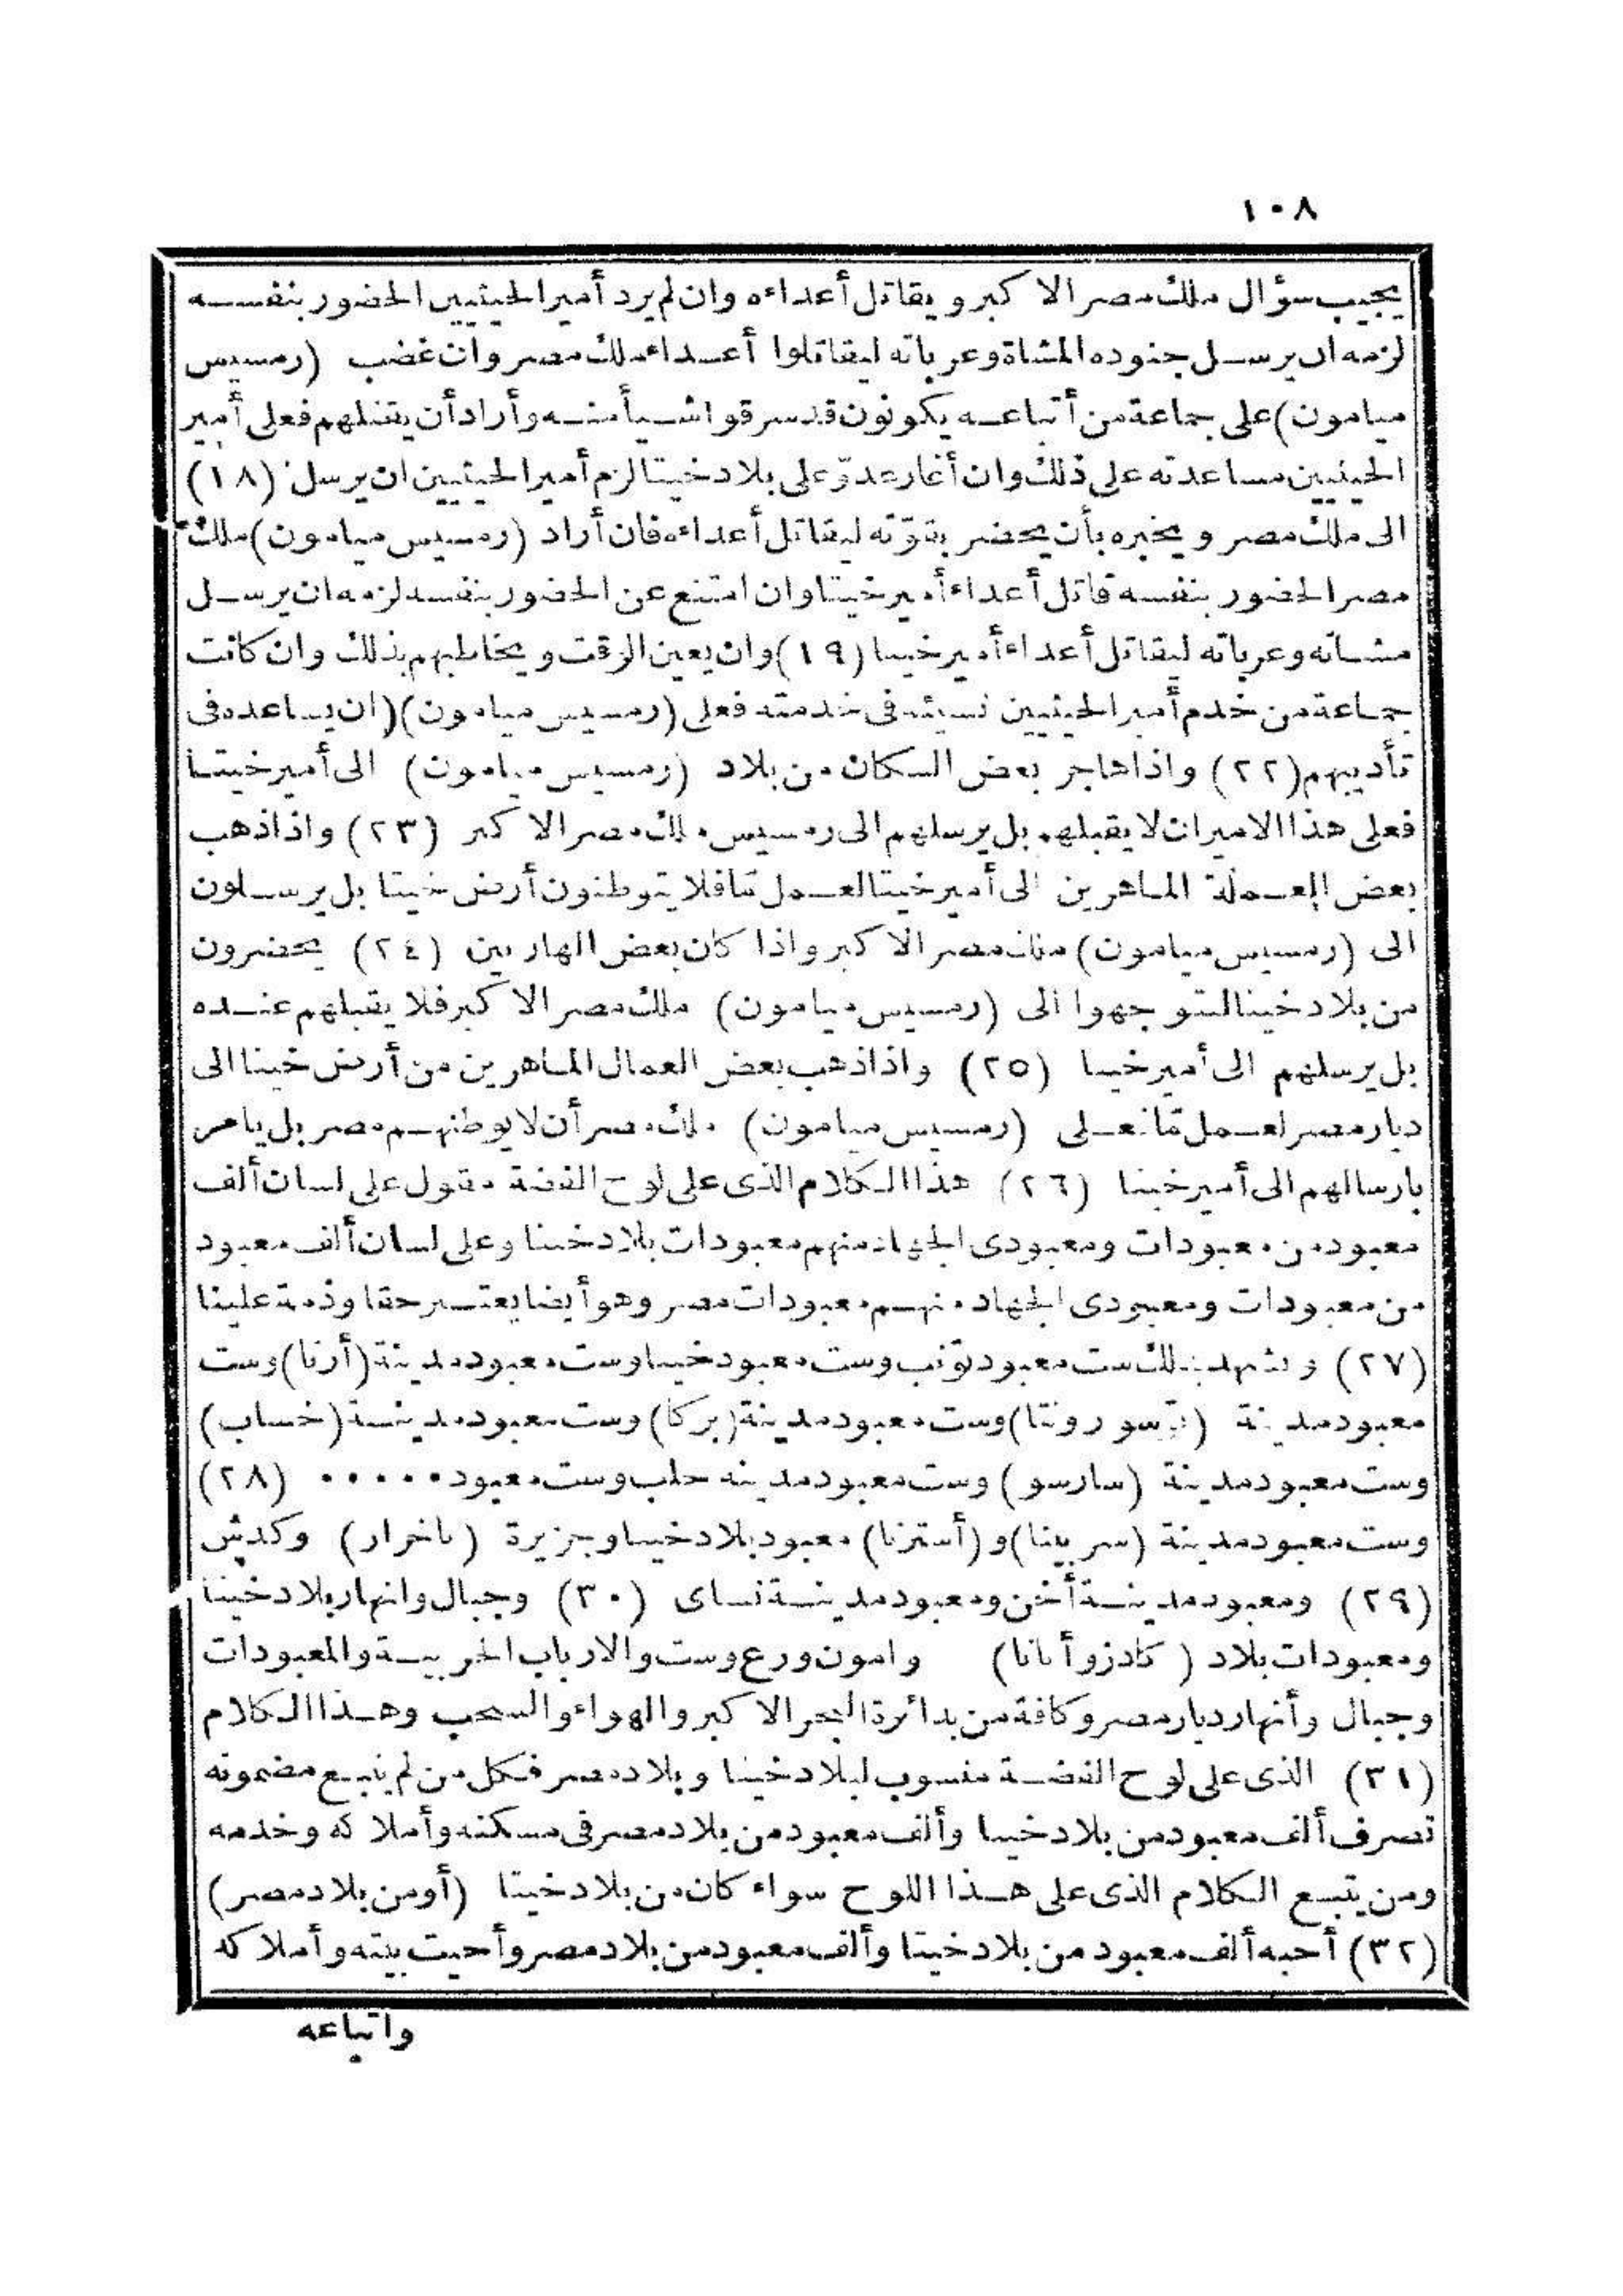 ١٠٨
يجيب سؤال ملك مصر الاكبر ويقاتل أعداءه وان لم يرد أمير الحيثيين الحضور بنفسه
لزمه ان يرسل جنوده المشاة وعرباته ليقاتلوا أعداء ملك مصر وان غضب (رمسيس
ميامون) على جماعة من أتباعه يكونون قد سرقوا شيأ منه وأراد أن يقتلهم فعلى أمير
الحيثيين مساعدته على ذلك وان أغار عدوّ على بلاد خيتا لزم أمير الحيثيين ان يرسل (١٨)
الى ملك مصر ويخبره بأن يحضر بقوّته ليقاتل أعداءه فان أراد (رمسيس ميامون) ملك
مصر الحضور بنفسه قاتل أعداء أمير خيتا وان امتنع عن الحضور بنفسه لزمه ان يرسل
مشاته وعرباته ليقاتل أعداء أمير خيتا (١٩) وان يعين الوقت ويخاطبهم بذلك وان كانت
جماعة من خدم أمير الحيثيين نسيئه فى خدمته فعلى (رمسيس ميامون) (ان يساعده فى
تأديبهم (٢٢) واذا هاجر بعض السكان من بلاد (رمسيس ميامون) الى أمير خيتا
فعلى هذا الامير ان لا يقبلهم بل يرسلهم الى رمسيس ملك مصر الاكبر (٢٣) واذا ذهب
بعض العملة الماهرين الى أمير خيتا لعمل مّا فلا يتوطنون أرض خيتا بل يرسلون
الى (رمسيس ميامون) ملك مصر الاكبر واذا كان بعض الهاربين (٢٤) يحضرون
من بلاد خيتا ليتوجهوا الى (رمسيس ميامون) ملك مصر الاكبر فلا يقبلهم عنده
بل يرسلهم الى أمير خيتا (٢٥) واذا ذهب بعض العمال الماهرين من أرض خيتا الى
ديار مصر لعمل مّا فعلى (رمسيس ميامون) ملك مصر أن لا يوطنهم مصر بل يامر
بارسالهم الى أمير خيتا (٢٦) هذا الكلام الذى على لوح الفضة مقول على لسان ألف
معبود من معبودات ومعبودى الجهاد منهم معبودات بلاد خيتا وعلى لسان ألف معبود
من معبودات ومعبودى الجهاد منهم معبودات مصر وهو أيضا يعتبر حقا وذمة علينا
(٢٧) ويشهد بذلك ست معبود تونب وست معبود خيتا وست معبود مدينة (أرنا) وست
معبود مدينة (تسورونتا) وست معبود مدينة (بركا) وست معبود مدينة (خساب)
وست معبود مدينة (سارسو) وست معبود مدينه حلب وست معبود ..... (٢٨)
وست معبود مدينة (سربينا) و(أستزنا) معبود بلاد خيتا وجزيرة (ناخرار) وكدش
(٢٩) ومعبود مدينة أخن ومعبود مدينة نساى (٣٠) وجبال وانهار بلاد خيتا
ومعبودات بلاد (كادزوأنانا) وامون ورع وست والارباب الحربية والمعبودات
وجبال وأنهار ديار مصر وكافة من بدائرة البحر الاكبر والهواء والسحب وهذا الكلام
(٣١) الذى على لوح الفضة منسوب لبلاد خيتا وبلاد مصر فكل من لم يتبع مضمونه
تصرف ألف معبود من بلاد خيتا وألف معبود من بلاد مصر فى مسكنه وأملاكه وخدمه
ومن يتبع الكلام الذى على هذا اللوح سواء كان من بلاد خيتا (أو من بلاد مصر)
(٣٢) أحبه ألف معبود من بلاد خيتا وألف معبود من بلاد مصر وأحيت بيته وأملاكه
واتباعه